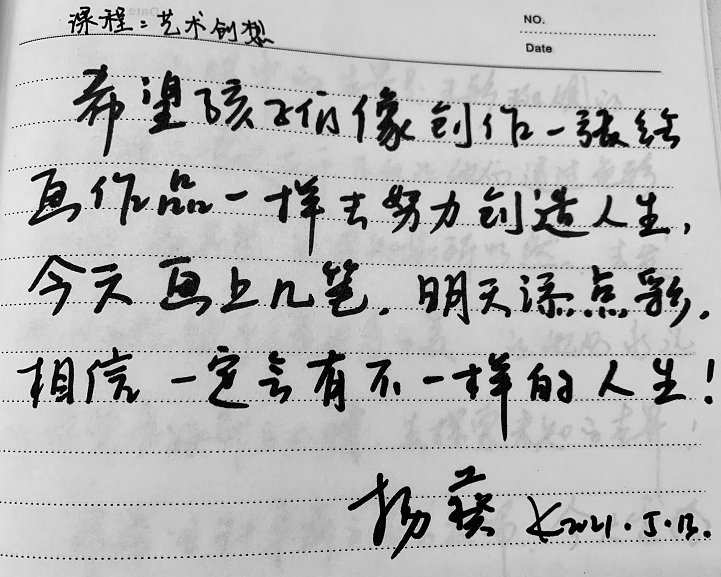 课程：艺术创想
NO.
Date
希望孩子们像创作一张绘
画作品一样去努力创造人生，
今天画上几笔，明天添点彩，
相信一定会有不一样的人生！
杨葵 2021.5.13.